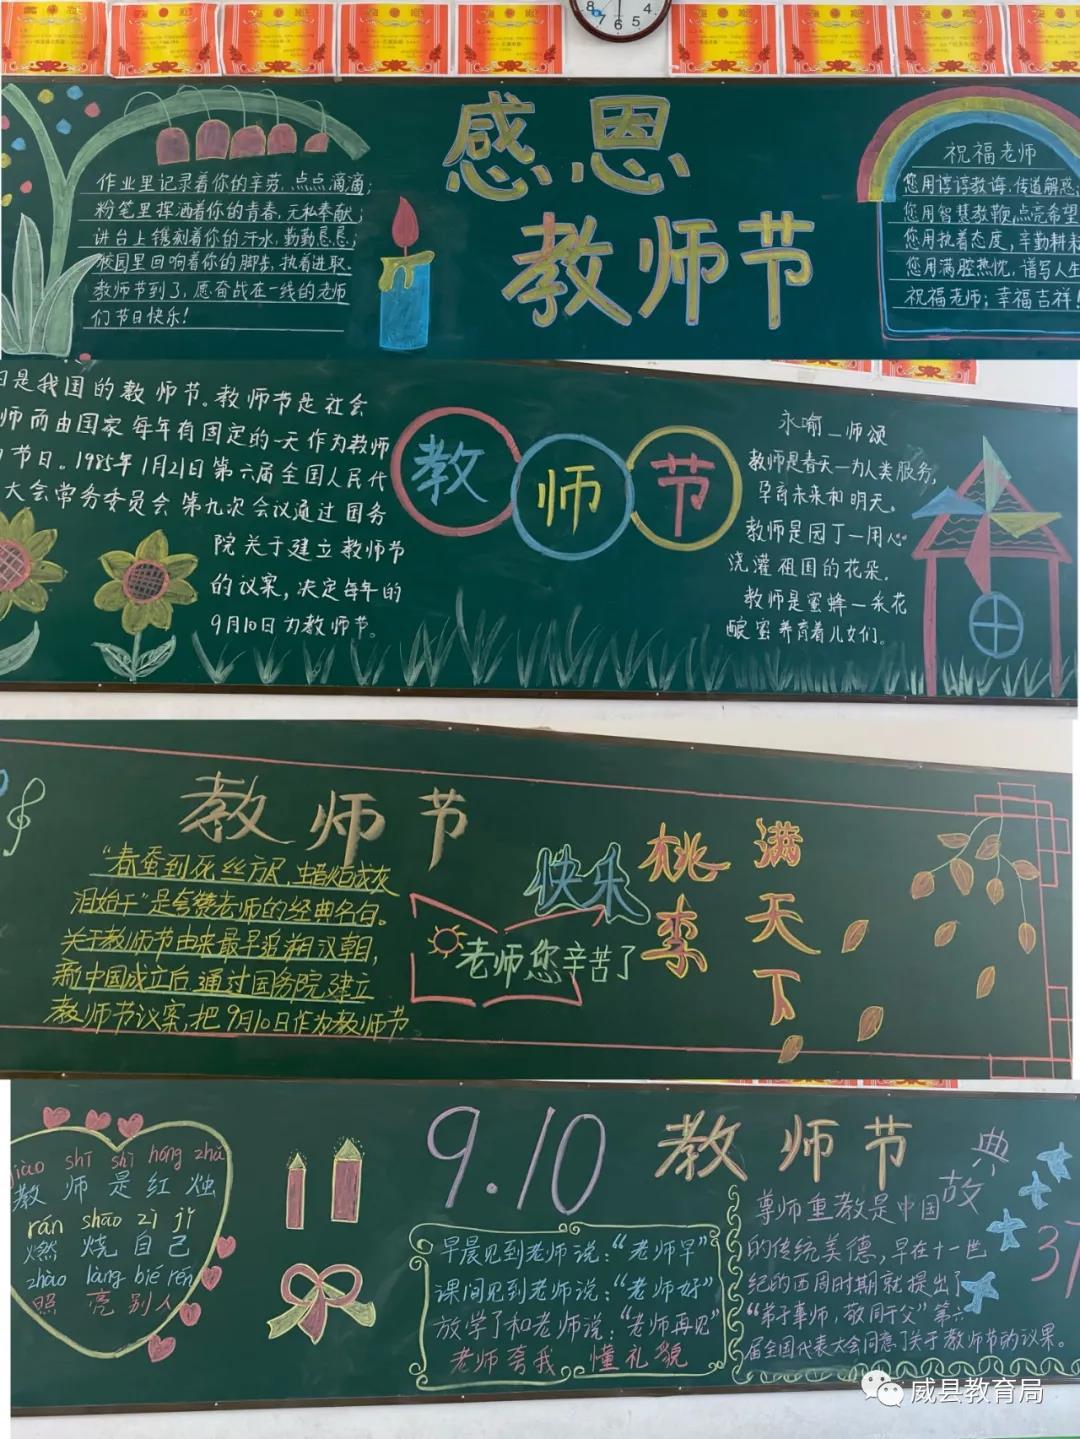 感恩
教师节
作业里记录着你的辛劳,点点滴滴;
粉笔里挥洒着你的青春,无私奉献;
讲台上镌刻着你的汗水,勤勤恳恳;
校园里回响着你的脚步,执着进取。
教师节到了,愿奋战在一线的老师
们节日快乐!
祝福老师
您用谆谆教诲,传道解惑;
您用智慧教鞭点亮希望
您用执着态度,辛勤耕耘
您用满腔热忱,谱写人生
祝福老师;幸福吉祥!
日是我国的教师节。教师节是社会
师而由国家每年有固定的一天作为教师
节日。1985年1月21日第六届全国人民代
大会常务委员会第九次会议通过国务
院关于建立教师节
的议案,决定每年的
9月10日为教师节。
教师节
永喻_师颂
教师是春天一为人类服务,
孕育未来和明天。
教师是园丁一用心
浇灌祖国的花朵.
教师是蜜蜂一采花
酿蜜养育着儿女们。
教师节
“春蚕到死丝方尽,蜡炬成灰
泪始干”是夸赞老师的经典名句。
关于教师节由来最早追溯汉朝,
新中国成立后,通过国务院建立
教师节议案,把9月10日作为教师节
快乐
老师您辛苦了
桃李
满天下
jiào shī shì hóng zhú
教师是红烛
rán shāo zì jǐ
燃烧自己
zhào liàng bié rén
照亮别人
9.10 教师节
早晨见到老师说:“老师早”
课间见到老师说:“老师好”
放学了和老师说:“老师再见”
老师夸我 懂礼貌
典故
尊师重教是中国
的传统美德,早在十一世
纪的西周时期就提出了
“弟子事师,敬同于父”第六
届全国代表大会同意了关于教师节的议果。
37
威县教育局